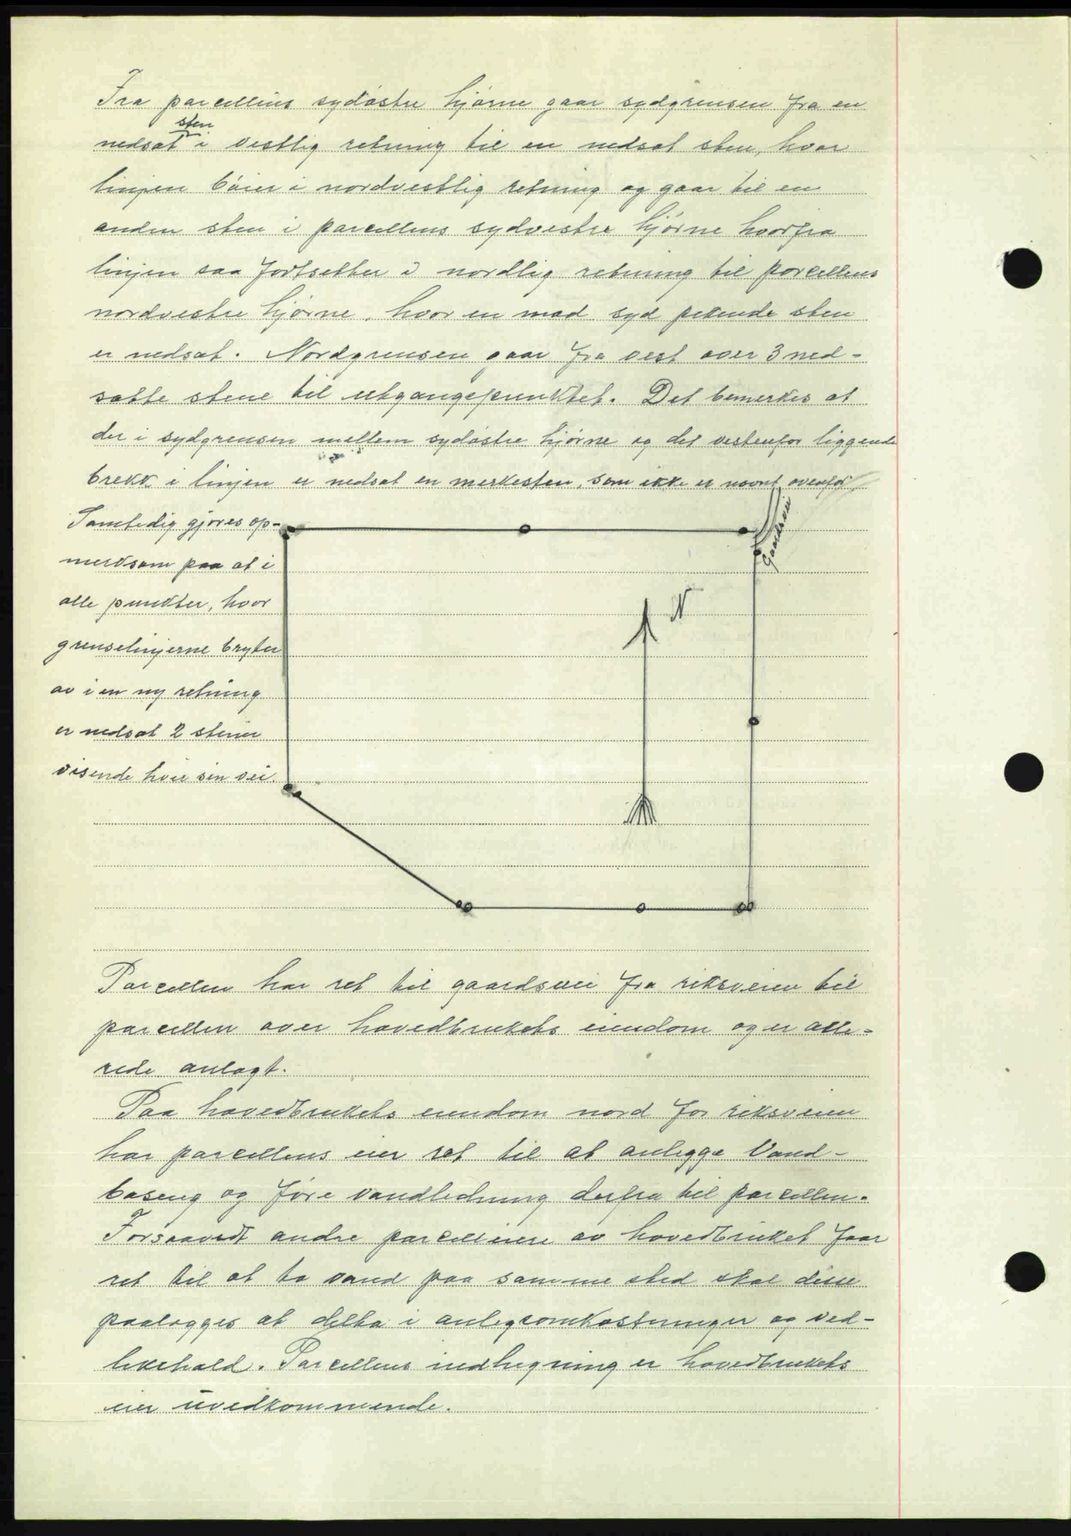 Fra parcellens sydøstre hjørne gaar sydgrensen fra en
nedsat sten i vestlig retning til en nedsat sten, hvor
linjen bøier i nordvestlig retning og gaar til en
anden sten i parcellens sydvestre hjørne hvorfra
linjen saa fortsetter i nordlig retning til parcellens
nordvestre hjørne, hvor en mod syd pekende sten
er nedsat. Nordgrensen gaar fra vest over 3 ned-
satte stene til utgangspunktet. Det bemerkes at
der i sydgrensen mellem sydøstre hjørne og det vestenfor liggende
brekk i linjen er nedsat en merkesten, som ikke er nævnt ovenfor
Samtidig gjøres op-
merksom paa at i
alle punkter, hvor
grenselinjerne bryter
av i en ny retning
er nedsat 2 stener
visende hver sin vei.
Gaardsvei
N
Parcellen har ret til gaardsvei fra riksveien til
parcellen over hovedbrukets eiendom og er alle-
rede anlagt.
Paa hovedbrukets eiendom nord for riksveien
har parcellens eier ret til at anlegge Vand-
baseng og føre vandledning derfra til parcellen.
Forsaavidt andre parcelleiere av hovedbruket faar
ret til at ta vand paa samme sted skal disse
paalegges at delta i anlegsomkostninger og ved-
likehold. Parcellens indhegning er hovedbrukets
eier uvedkommende.